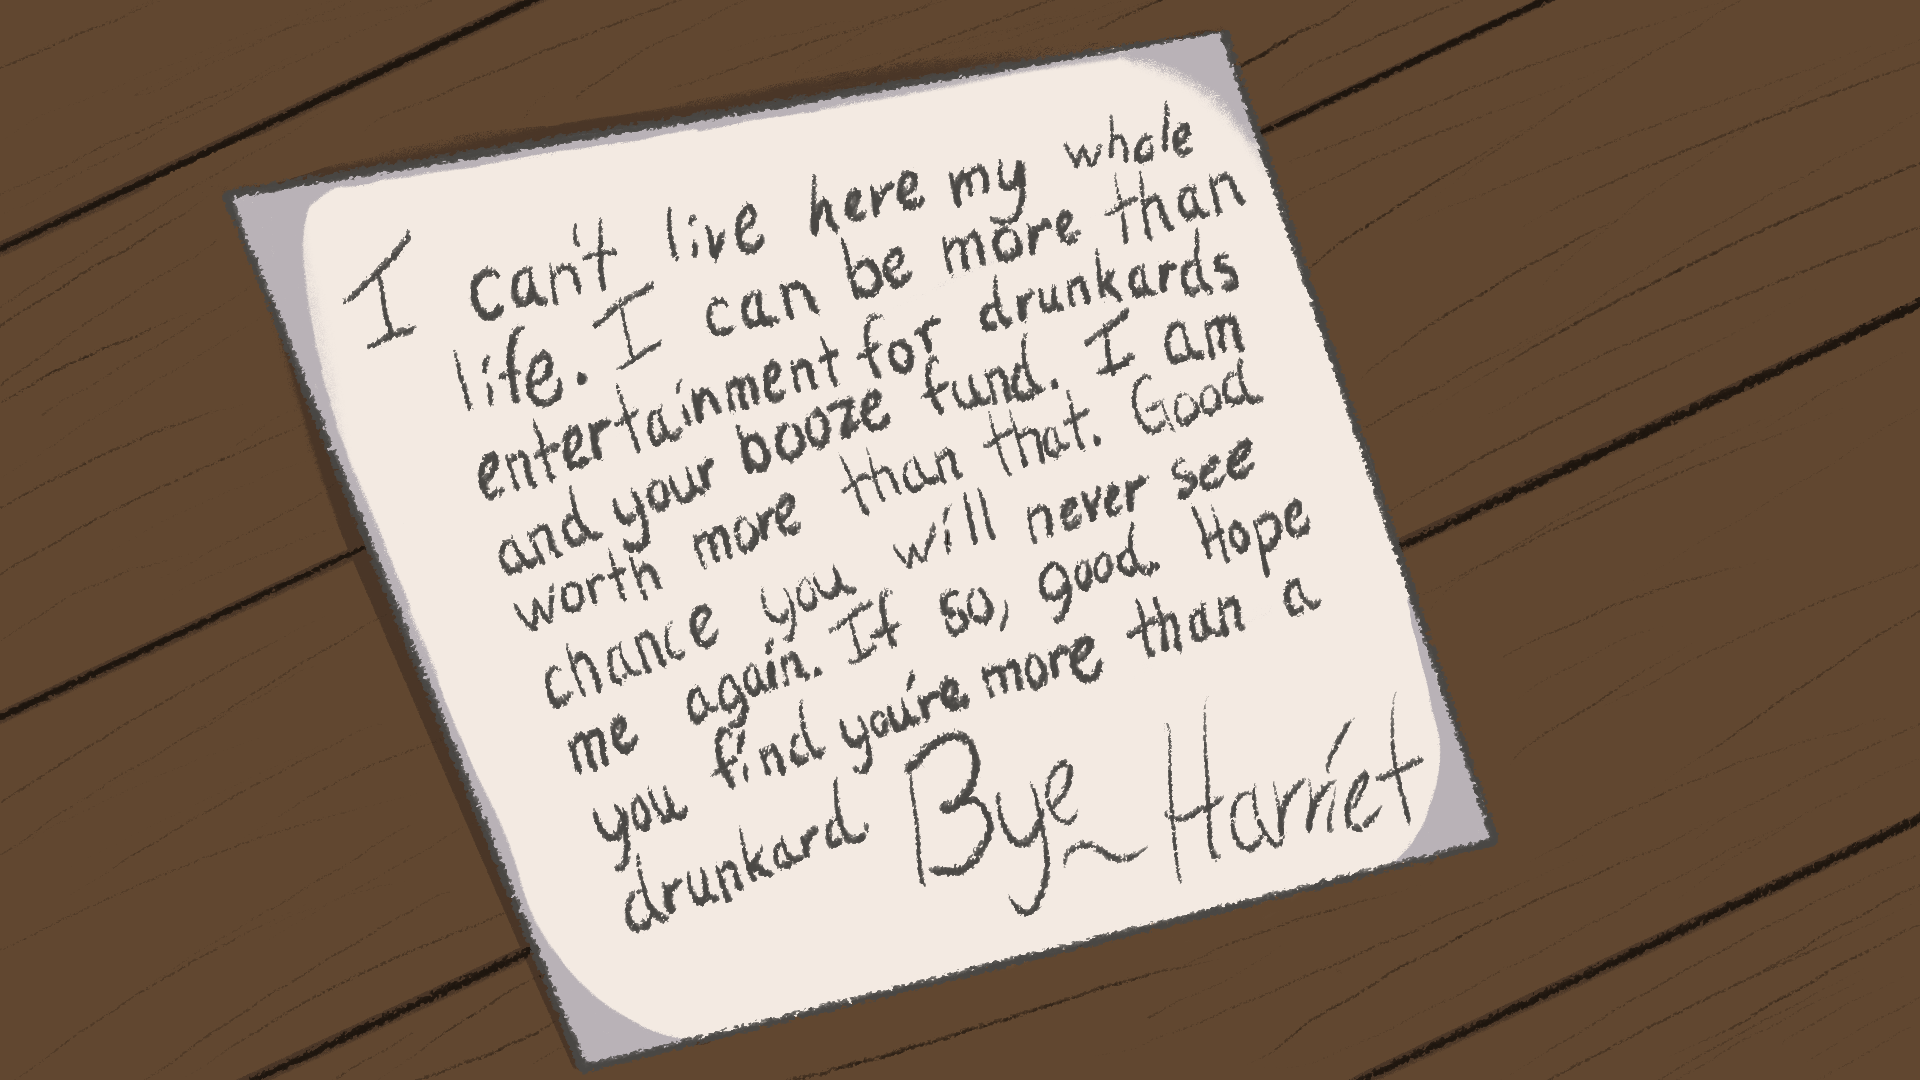 I can't live here my whole
life. I can be more than
entertainment for drunkards
and your booze fund. I am
worth more than that. Good
chance you will never see
me again. If so, good. Hope
you find you're more than a
drunkard Bye ~ Harriet